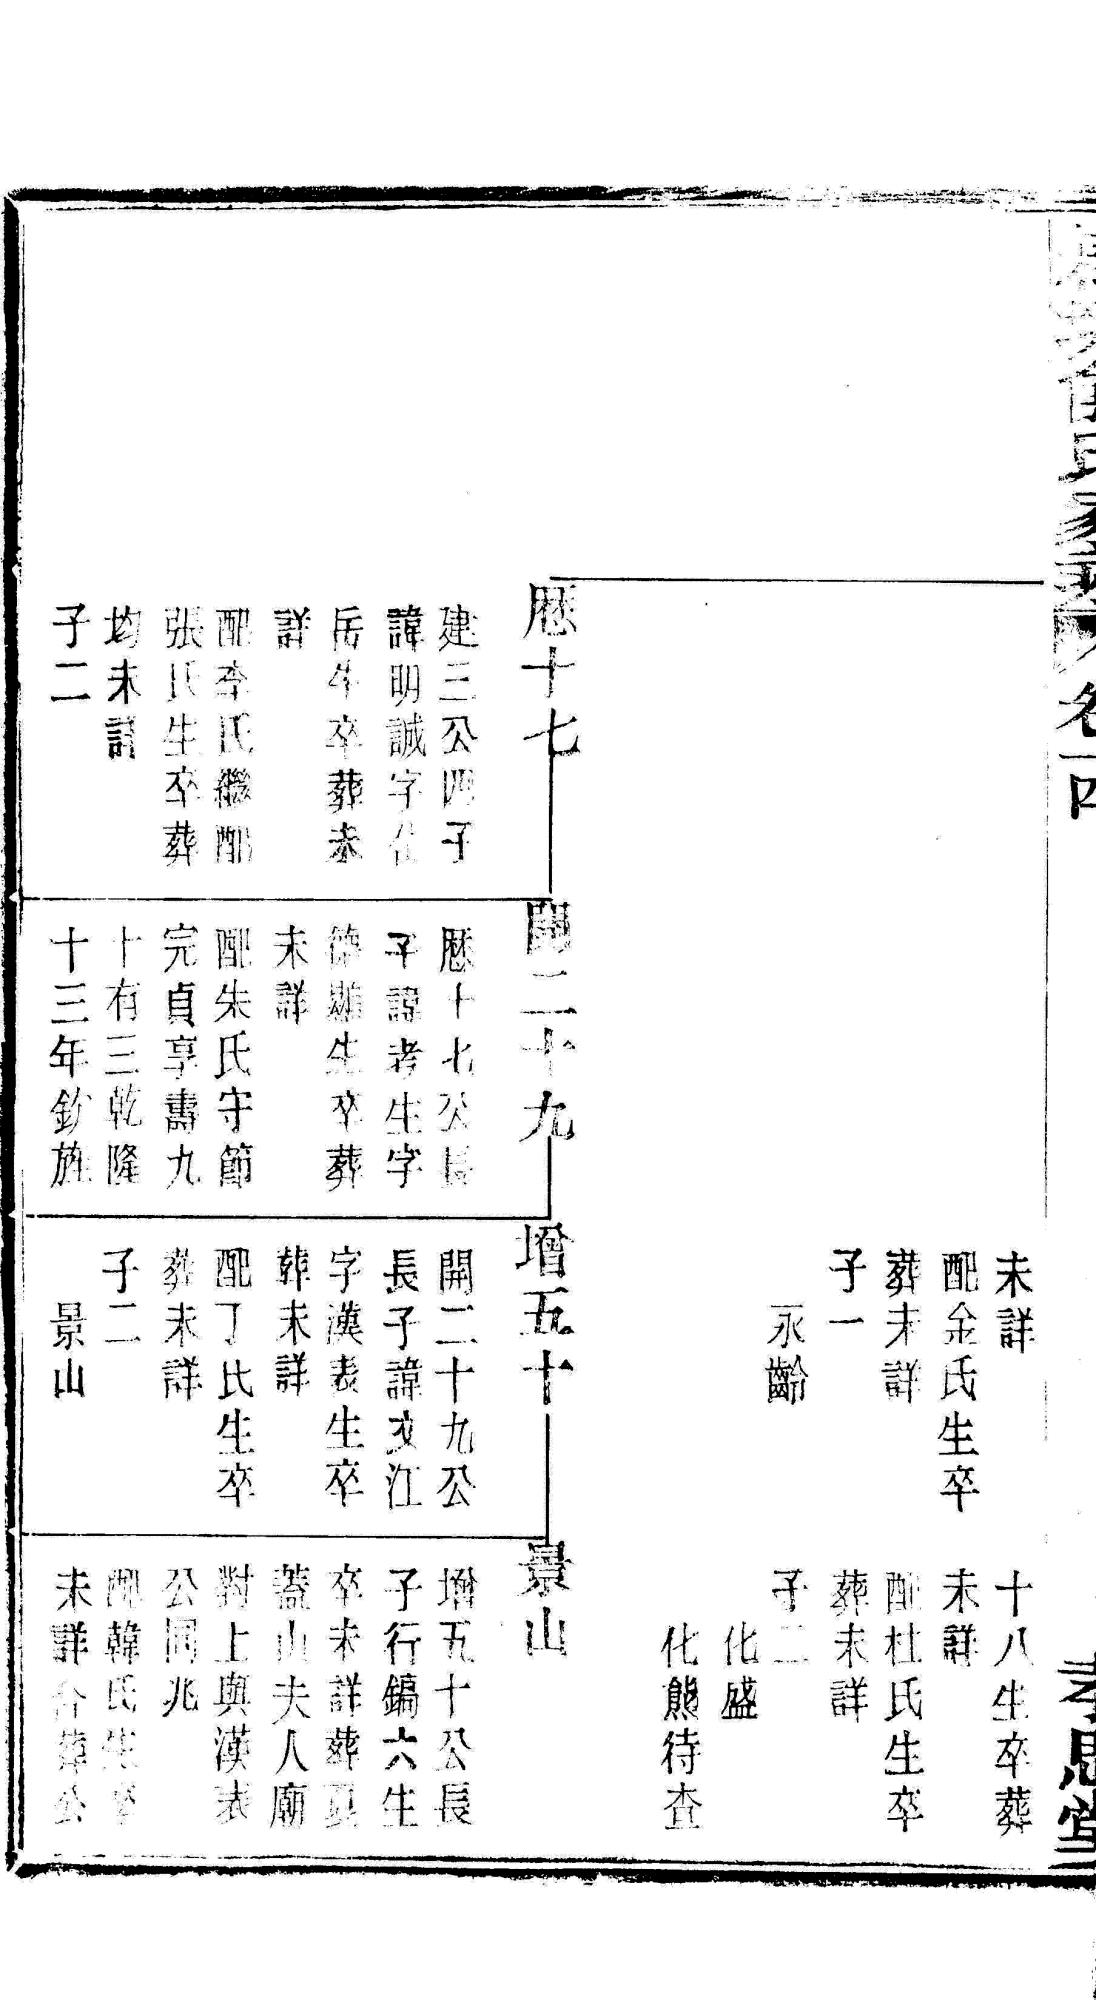 氏
卷十四
孝思堂
未詳
配金氏生卒
葬未詳
子一
永齡
十八生卒葬
未詳
配杜氏生卒
葬未詳
子二
化盛
化熊待查
歷十七
建三公四子
諱明誠字仕
岳生卒葬未
詳
配李氏繼配
張氏生卒葬
均未詳
子二
開二十九
歷十七公長
子諱考生字
德顯生卒葬
未詳
配朱氏守節
完貞享壽九
十有三乾隆
十三年欽旌
增五十
開二十九公
長子諱文江
字漢表生卒
葬未詳
配丁氏生卒
葬未詳
子二
景山
景山
增五十公長
子行鎬六生
卒未詳葬夏
蓋山夫人廟
對上與漢表
公同兆
配韓氏生卒
未詳合葬公